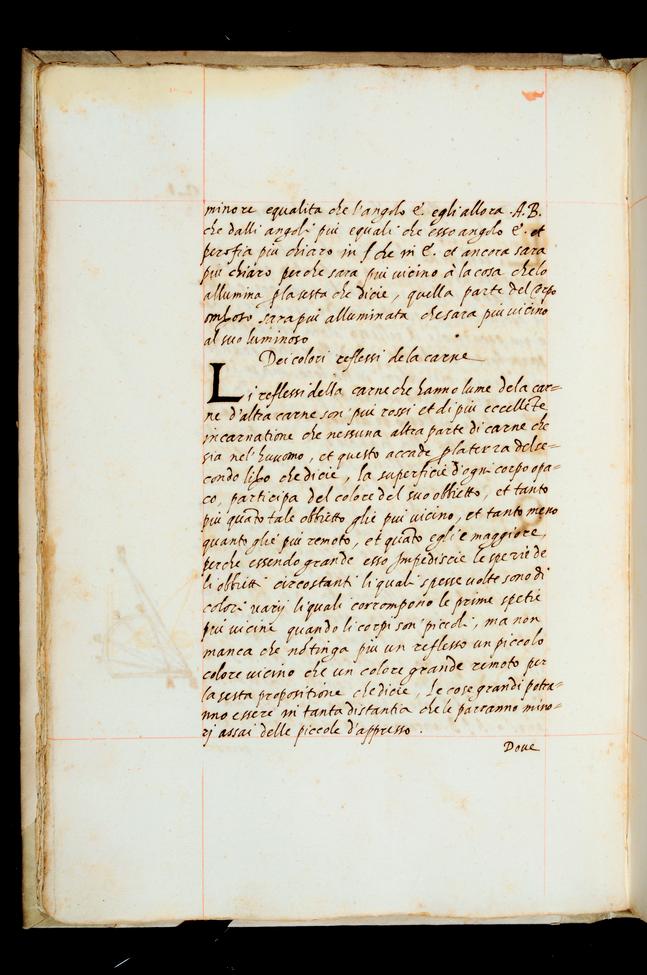 minore equalita che l'angolo E. egli allora .A.B.
che dalli angoli piu equali che esso angolo E. et
pero fia piu chiaro in f che in E. et ancora sara
piu chiaro perche sara piu vicino à la cosa che lo
allumina p la sesta che dicie, quella parte del corpo
ombroso sara piu alluminata che sara piu vicino
al suo luminoso
Dei colori reflessi de la carne
Li reflessi della carne che hanno lume de la car=
ne d'altra carne son' piu rossi et di piu eccellẽte
incarnatione che nessuna altra parte di carne che
sia nel' huuomo, et questo accade p la terza del se=
condo libro che dicie, la superficie d'ogni corpo opa=
co, participa del colore del suo obbietto, et tanto
piu quãto tale obbietto gliè piu vicino, et tanto meno
quanto gliè piu remoto, et quãto egli è maggiore,
perche essendo grande esso impediscie le sperie de
li obbietti circostanti li quali spesse volte sono di
colori varij li quali corrompono le prime spetie
piu vicine quando li corpi son' piccoli, ma non
manca che nõ tinga piu un reflesso un piccolo
colore vicino che un colore grande remoto per
la sesta propositione che dicie, le cose grandi potra=
nno essere in tanta distantia che le parranno mino=
rj assai delle piccole d'appresso.
Dove